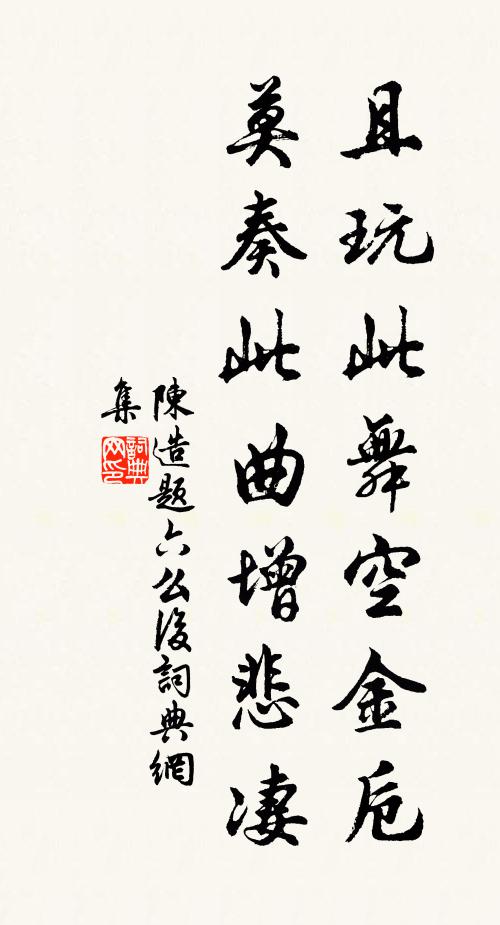 且玩此舞空金卮
莫奏此曲增悲凄
陳造題六么後詞典網
集
詞典网印